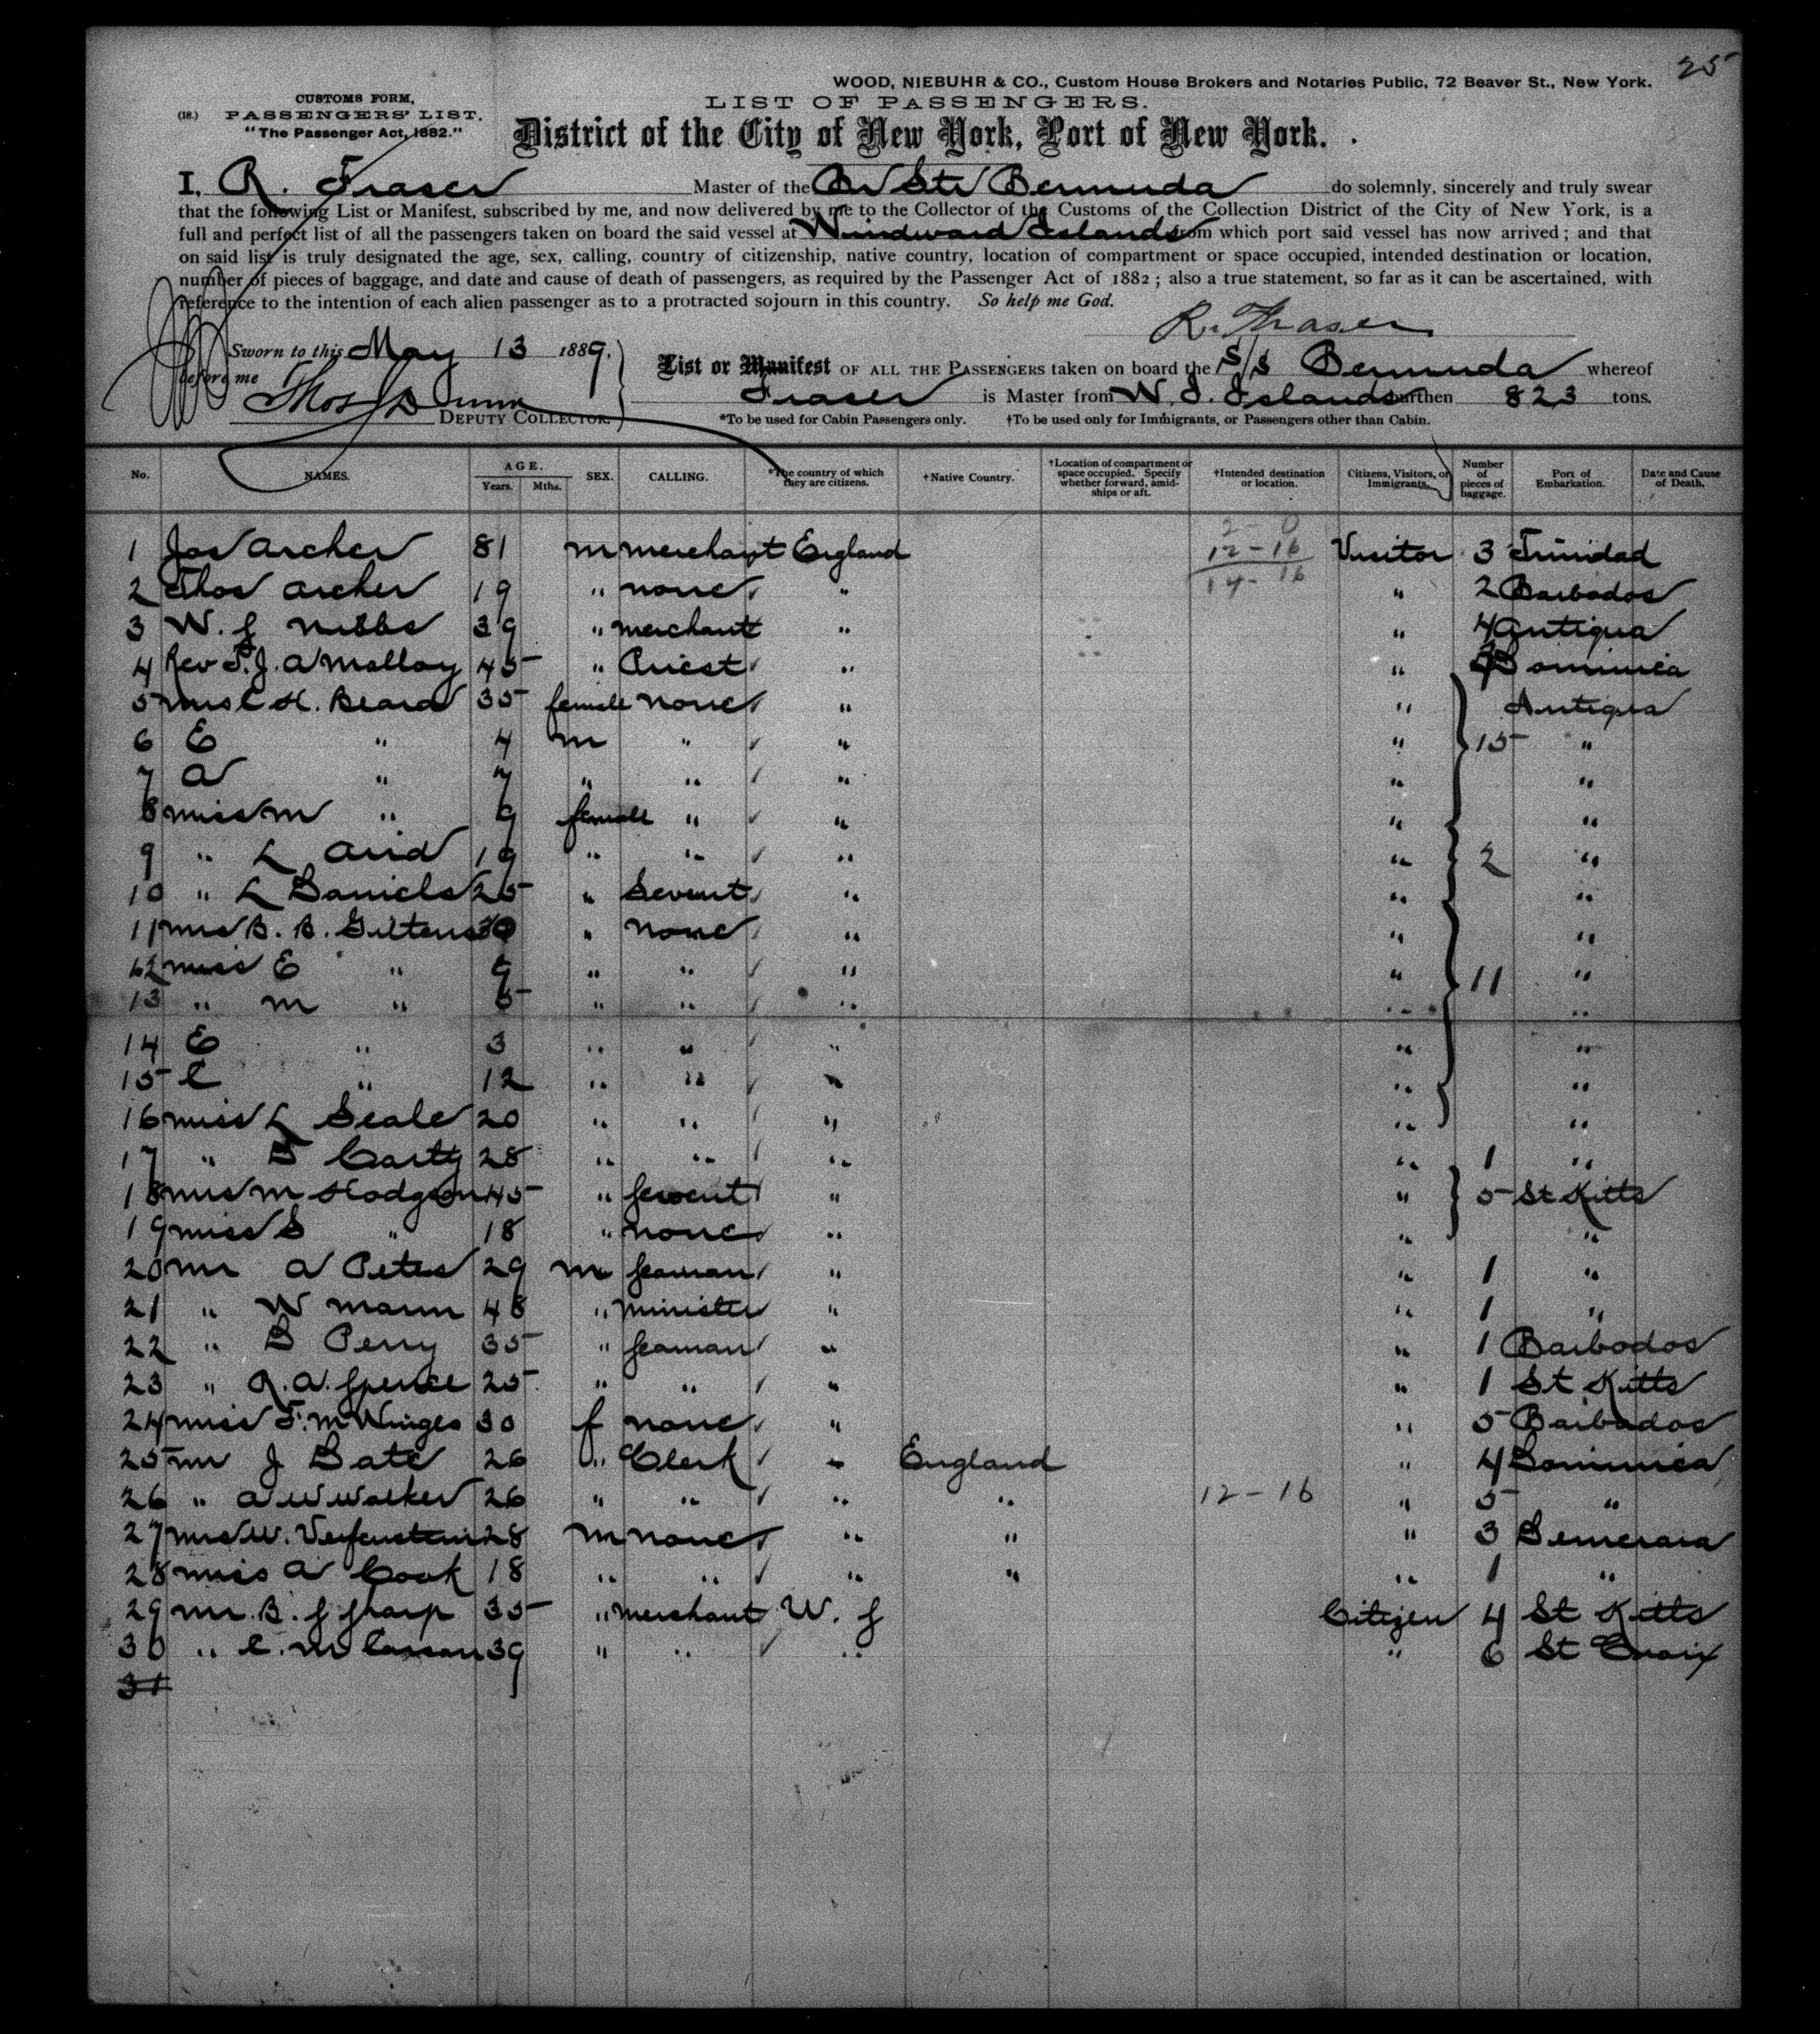 25
WOOD, NIEBUHR & CO., Custom House Brokers and Notaries Public, 72 Beaver St., New York.
CUSTOMS FORM,
(18.) PASSENGERS' LIST.
"The Passenger Act, 1882."
LIST OF PASSENGERS.
District of the City of New York, Port of New York.
I, R. Fraser Master of the Br Str Bermuda do solemnly, sincerely and truly swear
that the following List or Manifest, subscribed by me, and now delivered by me to the Collector of the Customs of the Collection District of the City of New York, is a
full and perfect list of all the passengers taken on board the said vessel at Windward Islands from which port said vessel has now arrived; and that
on said list is truly designated the age, sex, calling, country of citizenship, native country, location of compartment or space occupied, intended destination or location,
number of pieces of baggage, and date and cause of death of passengers, as required by the Passenger Act of 1882; also a true statement, so far as it can be ascertained, with
reference to the intention of each alien passenger as to a protracted sojourn in this country. So help me God.
R. Fraser
Sworn to this May 13 1889.
before me
Thos Dunn
DEPUTY COLLECTOR.
List or Manifest OF ALL THE PASSENGERS taken on board the S/S Bermuda whereof
Fraser is Master from W. I. Islands burthen 823 tons.
*To be used for Cabin Passengers only. †To be used only for Immigrants, or Passengers other than Cabin.
No. NAMES. AGE. Years. Mths. SEX. CALLING. *The country of which they are citizens. †Native Country. †Location of compartment or space occupied. Specify whether forward, amidships or aft. †Intended destination or location. Citizens, Visitors, or Immigrants. Number of pieces of baggage. Port of Embarkation. Date and Cause of Death.
2 - 0
1 Jas Archer 81 m merchant England 12-16 Visitor 3 Trinidad
2 Thos Archer 19 " none " 14-16 " 2 Barbados
3 W. J Nibbs 39 " merchant " " 4 Antigua
4 Rev J. A Malloy 45 " Priest " " Dominica
5 Mrs C H. Beard 35 female none " " Antigua
6 E " 4 m " " " 15 "
7 A " 7 " " " " "
8 Miss M " 9 female " " " "
9 " L 19 " " " " 2 "
10 " L Daniels 25 " Servent " " "
11 Mrs B. B. 30 " none " " "
12 Miss E " 9 " " " " 11 "
13 " M " 5 " " " " "
14 E " 3 " " " " "
15 C " 12 " " " " "
16 Miss L Seale 20 " " " " "
17 " D Carty 28 " " " " 1 "
18 Mrs M Hodgson 45 " servent " " 5 St Kitts
19 Miss S " 18 " none " " "
20 Mr A Peter 29 m seaman " " 1 "
21 " W Mann 48 " minister " " 1 "
22 " D Perry 35 " seaman " " 1 Barbados
23 " R. A. Spence 25 " " " " 1 St Kitts
24 Miss F. M 30 f none " " 5 Barbados
25 Mr J Bate 26 " Clerk " England " 4 Dominica
26 " A W Walker 26 " " " " 12-16 " 5 "
27 Mrs W. 28 m none " " " 3 Demerara
28 Miss A Cook 18 " " " " " 1 "
29 Mr. B. J Sharp 35 " merchant W. J Citizen 4 St Kitts
30 " C. M 39 " " " " 6 St Croix
31